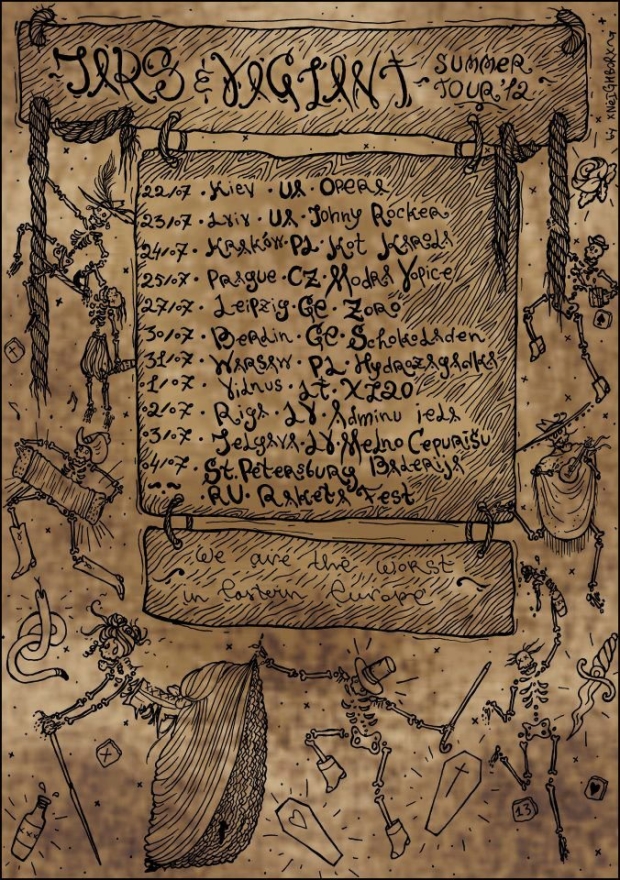 JARS & VIGILANT
SUMMER TOUR'12
by XNEIGHBORXN
22/07 · Kiev · UA · Opera
23/07 · Lviv · UA · Johny Rocker
24/07 · Kraków · PL · Kot Karola
25/07 · Prague · CZ · Modra Vopice
27/07 · Leipzig · GE · Zoro
30/07 · Berdin · GE · Schokoladen
31/07 · Warsaw · PL · Hydrozagadka
01/07 · Vidnus · LT · XI20
02/07 · Riga · LV · Adminu iela
03/07 · Jelgava · LV · Melno Cepurīšu
04/07 · St. Petersburg Balerija
~·~ · RU · Raketa Fest
We are the worst
in Eastern Europe
13